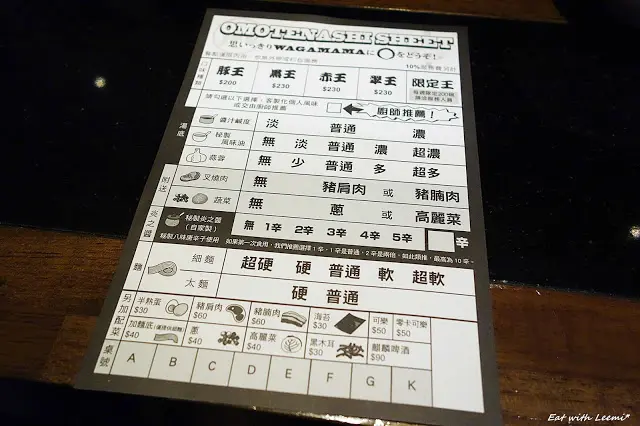 OMOTENASHI SHEET
思いっきりWAGAMAMAに○をどうぞ!
10%服務費另計
豚王 $200 黑王 $230 赤王 $230 翠王 $230 限定王
請勾選以下選擇,客製化個人風味
或交由廚師推薦
廚師推薦!
湯底
醬汁鹹度 淡 普通 濃
秘製風味油 無 淡 普通 濃 超濃
蒜蓉 無 少 普通 多 超多
附送
叉燒肉 無 豬肩肉 或 豬腩肉
蔬菜 無 蔥 或 高麗菜
炎之醬
秘製炎之醬(自家製) 無 1辛 2辛 3辛 4辛 5辛 辛
秘製八味唐辛子使用 如果第一次食用,我們推薦選擇1辛,1辛是普通,2辛是兩倍,如此類推,最高為10辛。
麵
細麵 超硬 硬 普通 軟 超軟
太麵 硬 普通
另加配菜
半熟蛋 $30 豬肩肉 $60 豬腩肉 $60 海苔 $30 可樂 $50 零卡可樂 $50
加麵底 $40 蔥 $40 高麗菜 $40 黑木耳 $30 麒麟啤酒 $90
桌號 A B C D E F G K
Eat with Leemi*